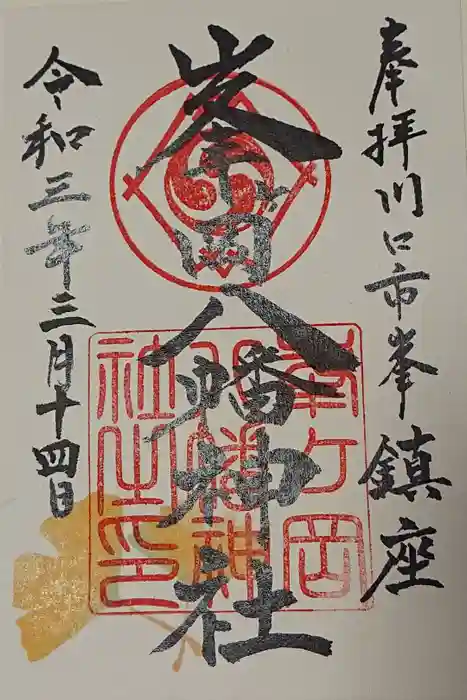 奉拝川口市峯鎮座
峯ヶ岡八幡神社
令和三年三月十四日
峯ヶ岡
八幡神
社之印